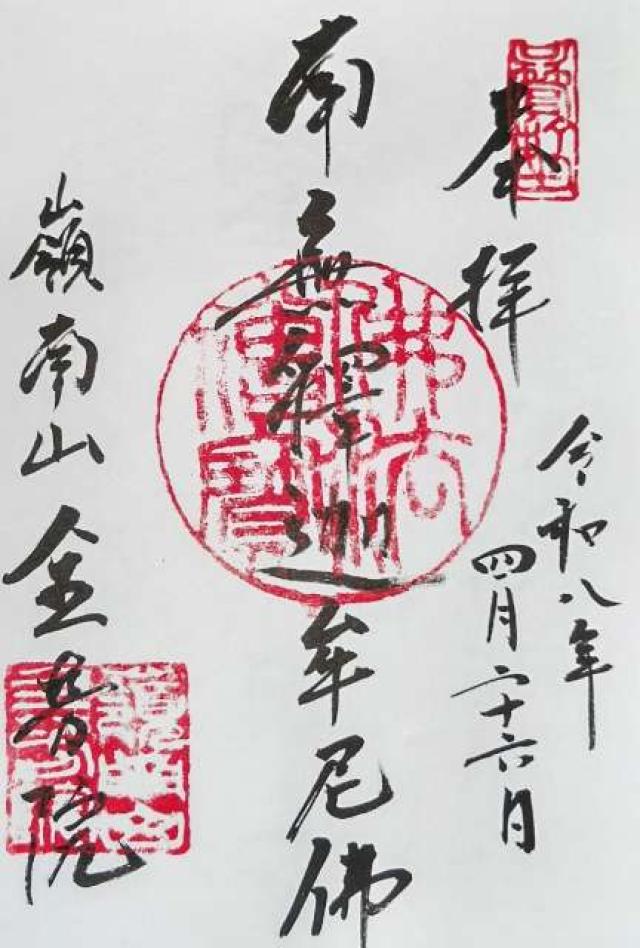 奉拝
令和八年
四月二十六日
南無釋迦牟尼佛
佛法僧寶
嶺南山
院